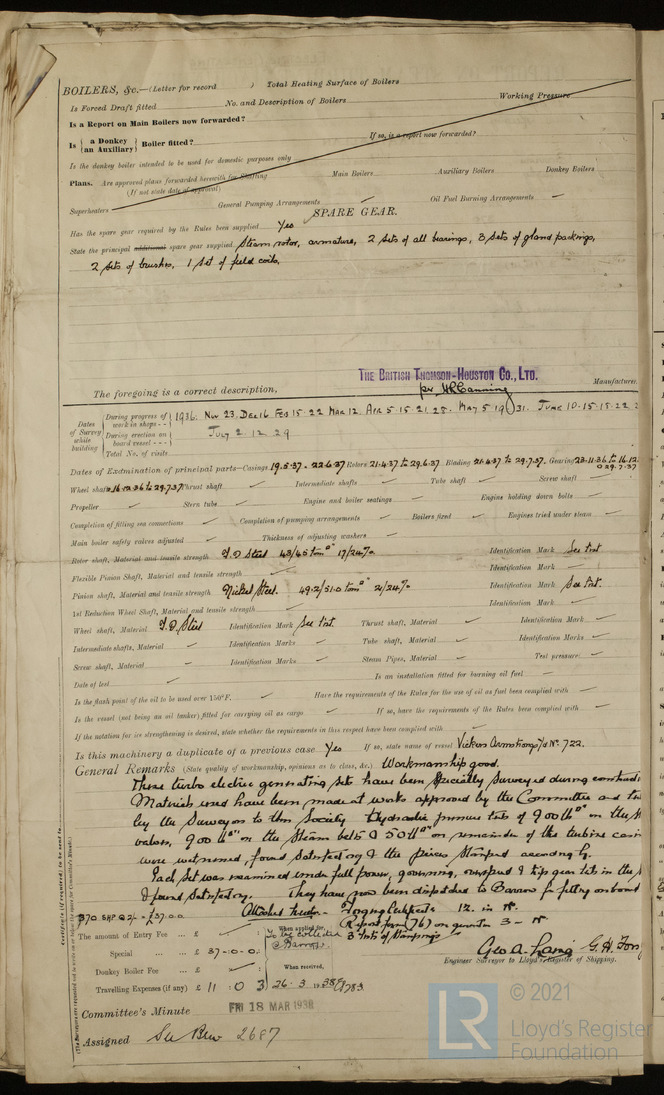 BOILERS, &c.—(Letter for record ) Total Heating Surface of Boilers
Is Forced Draft fitted No. and Description of Boilers Working Pressure
Is a Report on Main Boilers now forwarded?
Is { a Donkey / an Auxiliary } Boiler fitted? If so, is a report now forwarded?
Is the donkey boiler intended to be used for domestic purposes only
Plans. Are approved plans forwarded herewith for Shafting Main Boilers Auxiliary Boilers Donkey Boilers
(If not state date of approval)
Superheaters General Pumping Arrangements Oil Fuel Burning Arrangements
SPARE GEAR.
Has the spare gear required by the Rules been supplied Yes
State the principal additional spare gear supplied Steam rotor, armature, 2 sets of all bearings, 3 sets of gland packings,
2 sets of brushes, 1 set of field coils.
THE BRITISH THOMSON-HOUSTON CO., LTD.
The foregoing is a correct description, per Manufacturer
Dates of Survey while building
During progress of work in shops - - 1936. Nov 23, Dec 16, Feb 15 22 Mar 12, Apr 5 15 21 May 5 19 31. June 10 15 15 22
During erection on board vessel - - - July 2. 12. 29
Total No. of visits
Dates of Examination of principal parts—Casings 19.5.37 - 22.6.37 Rotors 21.4.37 to 29.6.37 Blading 21.4.37 to 29.7.37. Gearing 23.11.36 to 16.12
Wheel shaft 16.12.36 to 29.7.37 Thrust shaft Intermediate shafts Tube shaft Screw shaft
Propeller Stern tube Engine and boiler seatings Engine holding down bolts
Completion of fitting sea connections Completion of pumping arrangements Boilers fixed Engines tried under steam
Main boiler safety valves adjusted Thickness of adjusting washers
Rotor shaft, Material and tensile strength Steel 17/24% Identification Mark See list
Flexible Pinion Shaft, Material and tensile strength Identification Mark
Pinion shaft, Material and tensile strength Nickel Steel. 49.2/51.0 tons 21/24% Identification Mark See list.
1st Reduction Wheel Shaft, Material and tensile strength Identification Mark
Wheel shaft, Material Steel Identification Mark See list Thrust shaft, Material Identification Mark
Intermediate shafts, Material Identification Marks Tube shaft, Material Identification Marks
Screw shaft, Material Identification Marks Steam Pipes, Material Test pressure
Date of test Is an installation fitted for burning oil fuel
Is the flash point of the oil to be used over 150°F. Have the requirements of the Rules for the use of oil as fuel been complied with
Is the vessel (not being an oil tanker) fitted for carrying oil as cargo If so, have the requirements of the Rules been complied with
If the notation for ice strengthening is desired, state whether the requirements in this respect have been complied with
Is this machinery a duplicate of a previous case Yes If so, state name of vessel Vickers Armstrongs No. 722.
General Remarks (State quality of workmanship, opinions as to class, &c.) Workmanship good.
These turbo electric generating sets have been specially surveyed during
Materials used have been made at works approved by the Committee and
by the Surveyors to this Society. Hydraulic pressure tests of 900 lb□" on the
valves, 900 lb□" on the steam belts & 50 lb□" on remainder of the turbine
were witnessed, found satisfactory & the pieces stamped accordingly.
Each set was examined under full power, governing, overspeed & trip gear tests in the
& found satisfactory. They have now been dispatched to Barrow for fitting onboard
Forging Certificates 12. in No.
Report form (76) on generator 3 - No.
3 lists of Stampings
The amount of Entry Fee ... £ : When applied for,
Special ... £ 37 - 0 - 0
Barrow
Donkey Boiler Fee ... £ : When received,
Travelling Expenses (if any) £ 11 : 0 3 26. 3. 1938
Geo A. Laing
Engineer Surveyor to Lloyd's Register of Shipping.
Committee's Minute FRI 18 MAR 1938
Assigned See Bow 2687
LR
© 2021
Lloyd's Register
Foundation